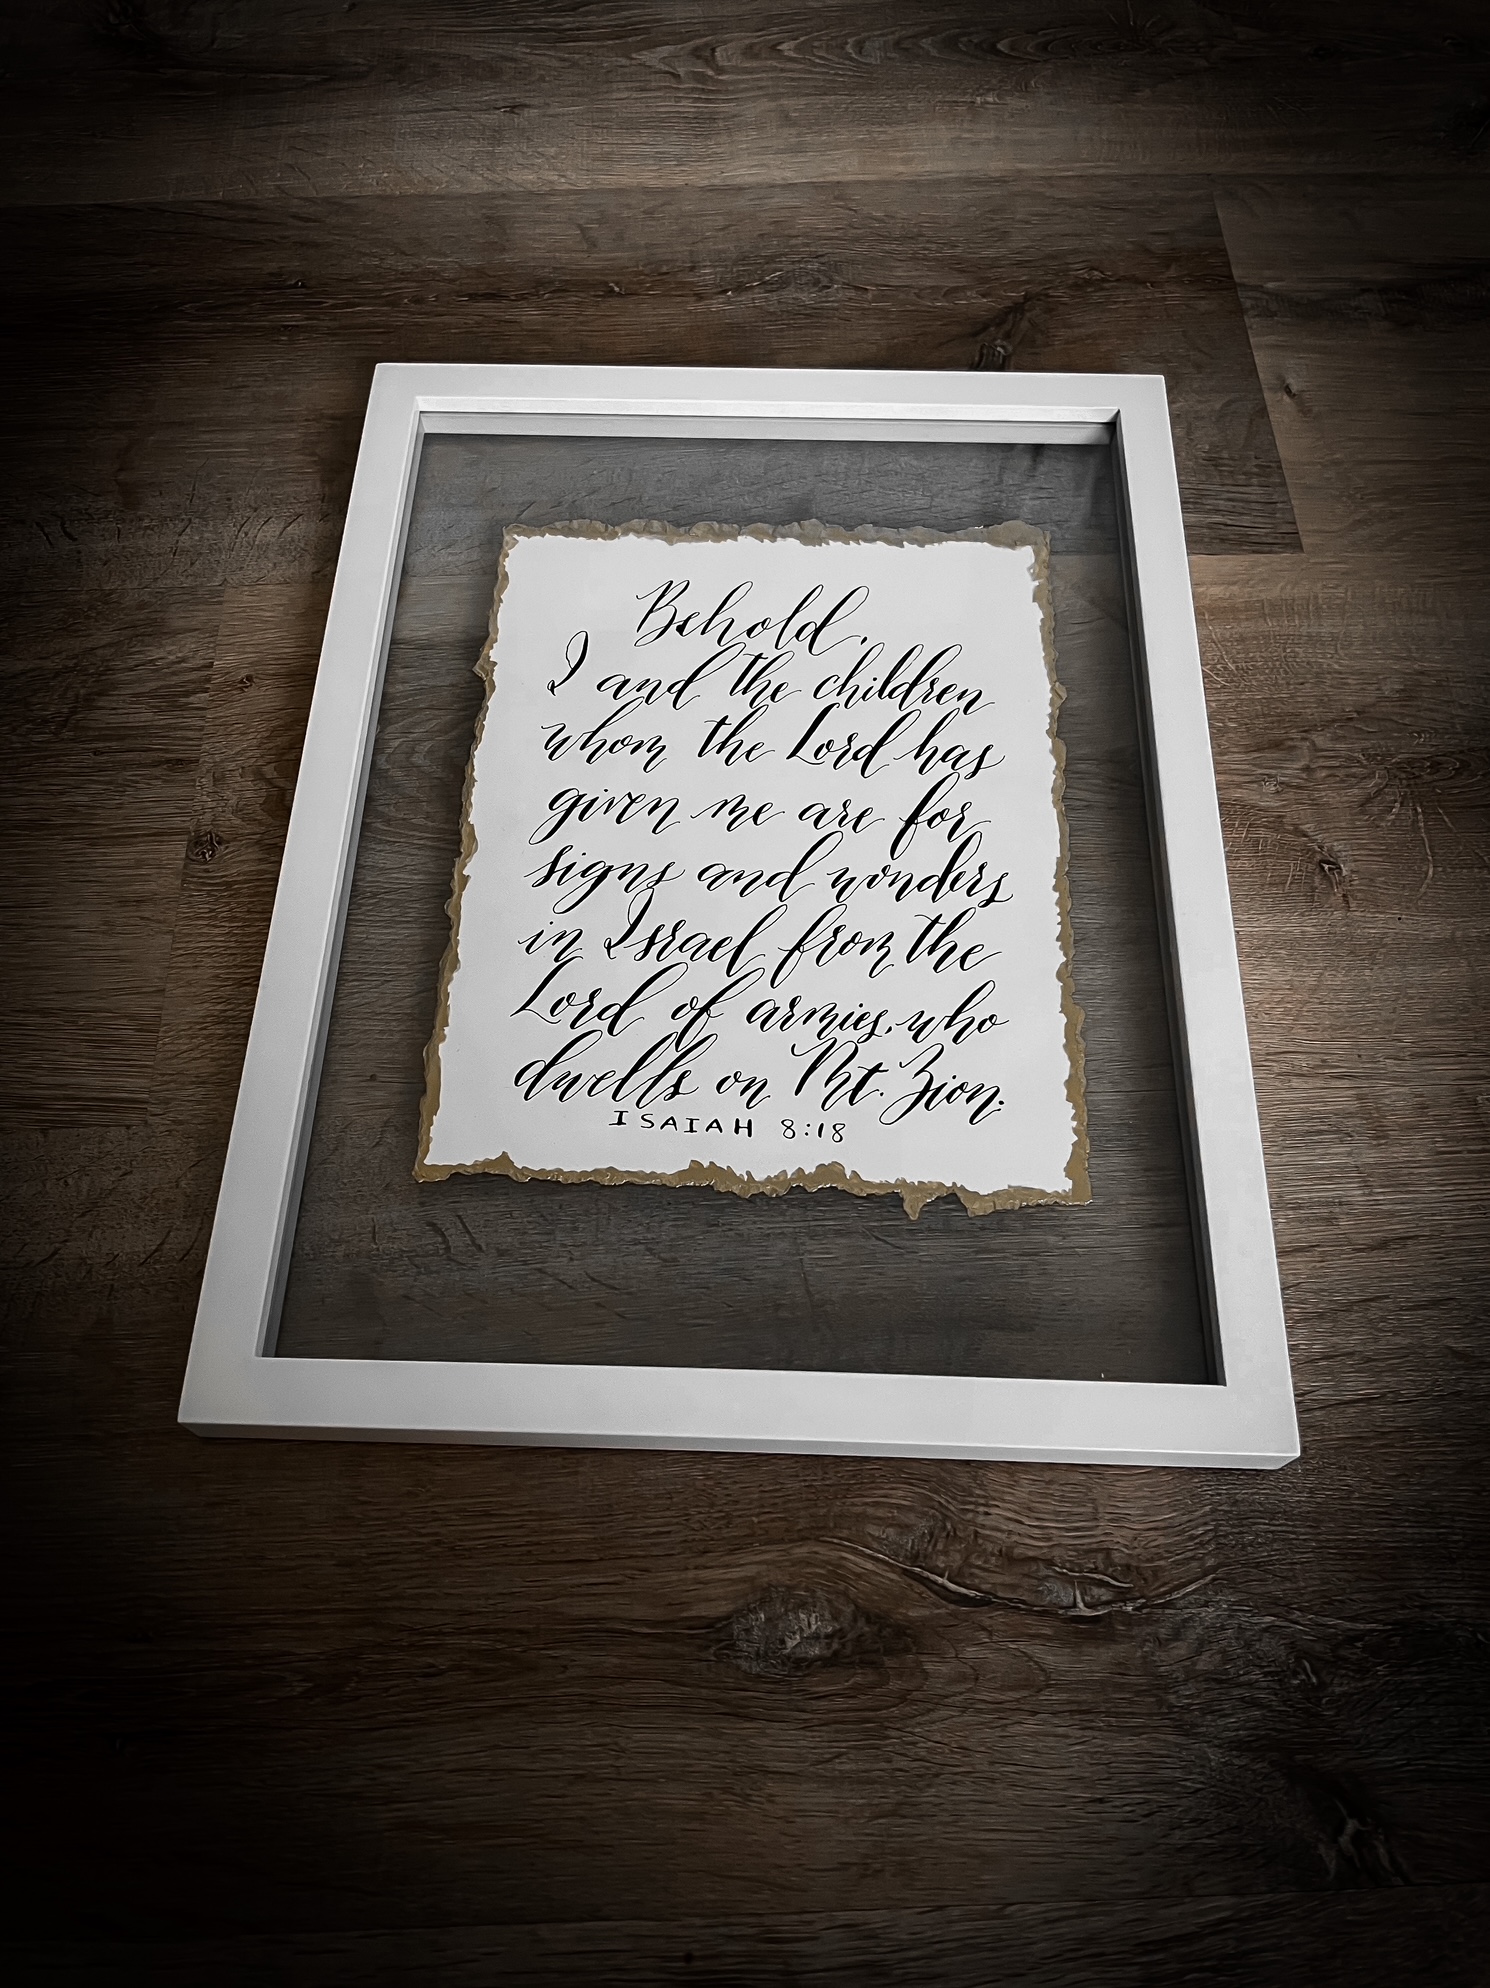 Behold,
I and the children
whom the Lord has
given me are for
signs and wonders
in Israel from the
Lord of armies, who
dwells on Mt. Zion.
ISAIAH 8:18